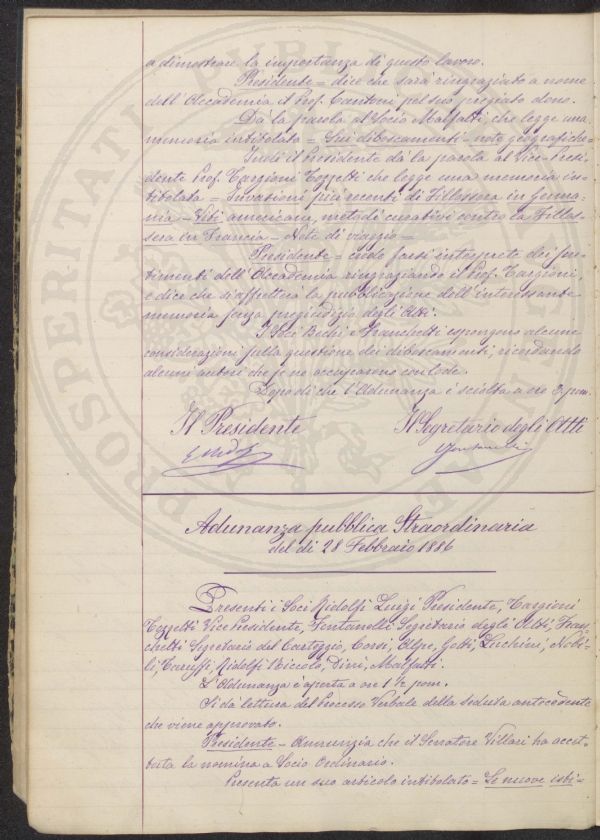 a dimostrare la importanza di questo lavoro.
Presidente = dice che sarà ringraziato a nome
dell'Accademia il Prof. Cantoni pel suo pregiato dono.
Dà la parola al Socio Malfatti, che legge una
memoria intitolata = Sui diboscamenti - note geografiche =
Indi il Presidente dà la parola al Vice-Presi-
dente Prof. Targioni Tozzetti che legge una memoria in-
titolata = Invasioni più recenti di Fillossera in Germa-
nia - Viti americane, metodi curativi contro la Fillos-
sera in Francia - Note di viaggio =
Presidente = crede farsi interprete dei sen-
timenti dell'Accademia ringraziando il Prof. Targioni,
e dice che si affretterà la pubblicazione dell'interessante
memoria senza pregiudizio degli Atti.
I Soci Bechi e Franchetti espongono alcune
considerazioni sulla questione dei diboscamenti, ricordando
alcuni autori che se ne occuparono con lode.
Dopo di che l'Adunanza è sciolta a ore 3 pom.
Il Presidente Il Segretario degli Atti
Adunanza pubblica Straordinaria
del dì 28 Febbraio 1886
Presenti i Soci Ridolfi Luigi Presidente, Targioni
Tozzetti Vice Presidente, Fontanelli Segretario degli Atti, Fran-
chetti Segretario del Carteggio, Corsi, Alpe, Gotti, Luchini,
li, Caruffi Ridolfi Niccolò, Dini, Malfatti.
L'Adunanza è aperta a ore 1 ½ pom.
Si dà lettura del Processo Verbale della Seduta antecedente
che viene approvato.
Presidente - Annunzia che il Senatore Villari ha accet-
tata la nomina a Socio Ordinario.
Presenta un suo articolo intitolato = Le nuove isti=
PROSPERITATI PUBLICAE